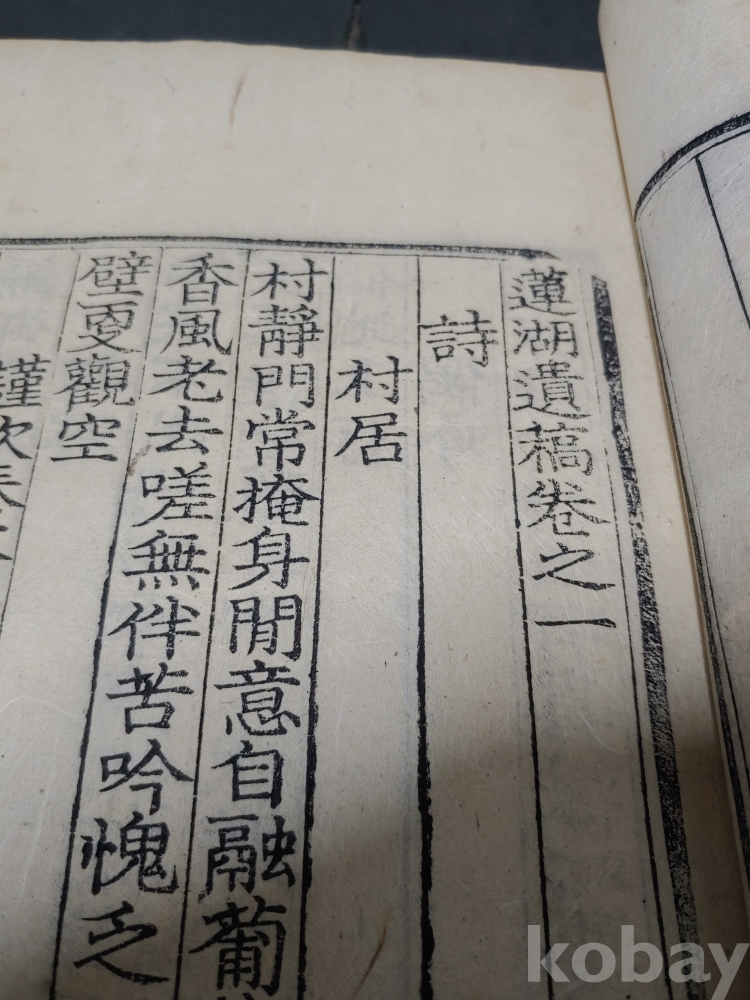 蓮湖遺稿卷之一
詩
村居
村靜門常掩身閒意自融葡
香風老去嗟無伴苦吟愧乏
壁更觀空
謹次
kobay